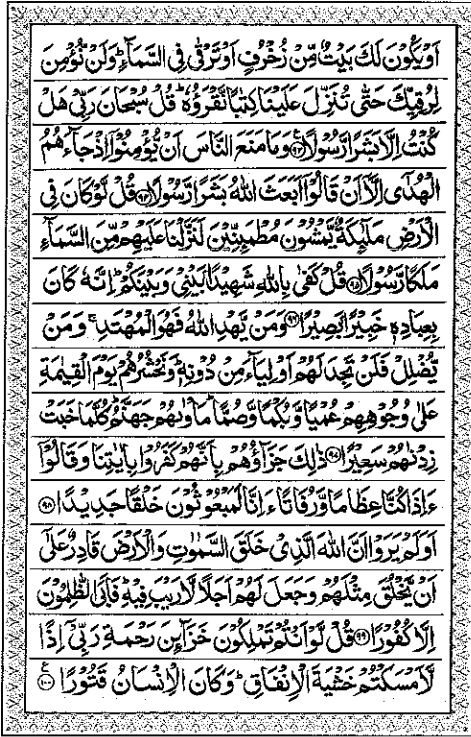 اَوۡ یَكُوۡنَ لَكَ بَیۡتٌ مِّنۡ زُخۡرُفٍ اَوۡ تَرۡقٰی فِی السَّمَآءِ ؕ وَلَنۡ نُّؤۡمِنَ
لِرُقِیِّكَ حَتّٰی تُنَزِّلَ عَلَیۡنَا كِتٰبًا نَّقۡرَؤُهٗ ؕ قُلۡ سُبۡحَانَ رَبِّیۡ هَلۡ
كُنۡتُ اِلَّا بَشَرًا رَّسُوۡلًا ﴿۹۳﴾ وَمَا مَنَعَ النَّاسَ اَنۡ یُّؤۡمِنُوۡۤا اِذۡ جَآءَهُمُ
الۡهُدٰۤی اِلَّاۤ اَنۡ قَالُوۡۤا اَبَعَثَ اللّٰهُ بَشَرًا رَّسُوۡلًا ﴿۹۴﴾ قُلۡ لَّوۡ كَانَ فِی
الۡاَرۡضِ مَلٰٓئِكَةٌ یَّمۡشُوۡنَ مُطۡمَئِنِّیۡنَ لَنَزَّلۡنَا عَلَیۡهِمۡ مِّنَ السَّمَآءِ
مَلَكًا رَّسُوۡلًا ﴿۹۵﴾ قُلۡ كَفٰی بِاللّٰهِ شَهِیۡدًۢا بَیۡنِیۡ وَبَیۡنَكُمۡ ؕ اِنَّهٗ كَانَ
بِعِبَادِهٖ خَبِیۡرًۢا بَصِیۡرًا ﴿۹۶﴾ وَمَنۡ یَّهۡدِ اللّٰهُ فَهُوَ الۡمُهۡتَدِ ۚ وَمَنۡ
یُّضۡلِلۡ فَلَنۡ تَجِدَ لَهُمۡ اَوۡلِیَآءَ مِنۡ دُوۡنِهٖ ؕ وَنَحۡشُرُهُمۡ یَوۡمَ الۡقِیٰمَةِ
عَلٰی وُجُوۡهِهِمۡ عُمۡیًا وَّبُكۡمًا وَّصُمًّا ؕ مَاۡوٰىهُمۡ جَهَنَّمُ ؕ كُلَّمَا خَبَتۡ
زِدۡنٰهُمۡ سَعِیۡرًا ﴿۹۷﴾ ذٰلِكَ جَزَآؤُهُمۡ بِاَنَّهُمۡ كَفَرُوۡا بِاٰیٰتِنَا وَقَالُوۡۤا
ءَاِذَا كُنَّا عِظَامًا وَّرُفَاتًا ءَاِنَّا لَمَبۡعُوۡثُوۡنَ خَلۡقًا جَدِیۡدًا ﴿۹۸﴾
اَوَلَمۡ یَرَوۡا اَنَّ اللّٰهَ الَّذِیۡ خَلَقَ السَّمٰوٰتِ وَالۡاَرۡضَ قَادِرٌ عَلٰۤی
اَنۡ یَّخۡلُقَ مِثۡلَهُمۡ وَجَعَلَ لَهُمۡ اَجَلًا لَّا رَیۡبَ فِیۡهِ ؕ فَاَبَی الظّٰلِمُوۡنَ
اِلَّا كُفُوۡرًا ﴿۹۹﴾ قُلۡ لَّوۡ اَنۡتُمۡ تَمۡلِكُوۡنَ خَزَآئِنَ رَحۡمَةِ رَبِّیۡۤ اِذًا
لَّاَمۡسَكۡتُمۡ خَشۡیَةَ الۡاِنۡفَاقِ ؕ وَكَانَ الۡاِنۡسَانُ قَتُوۡرًا ﴿۱۰۰﴾ ع